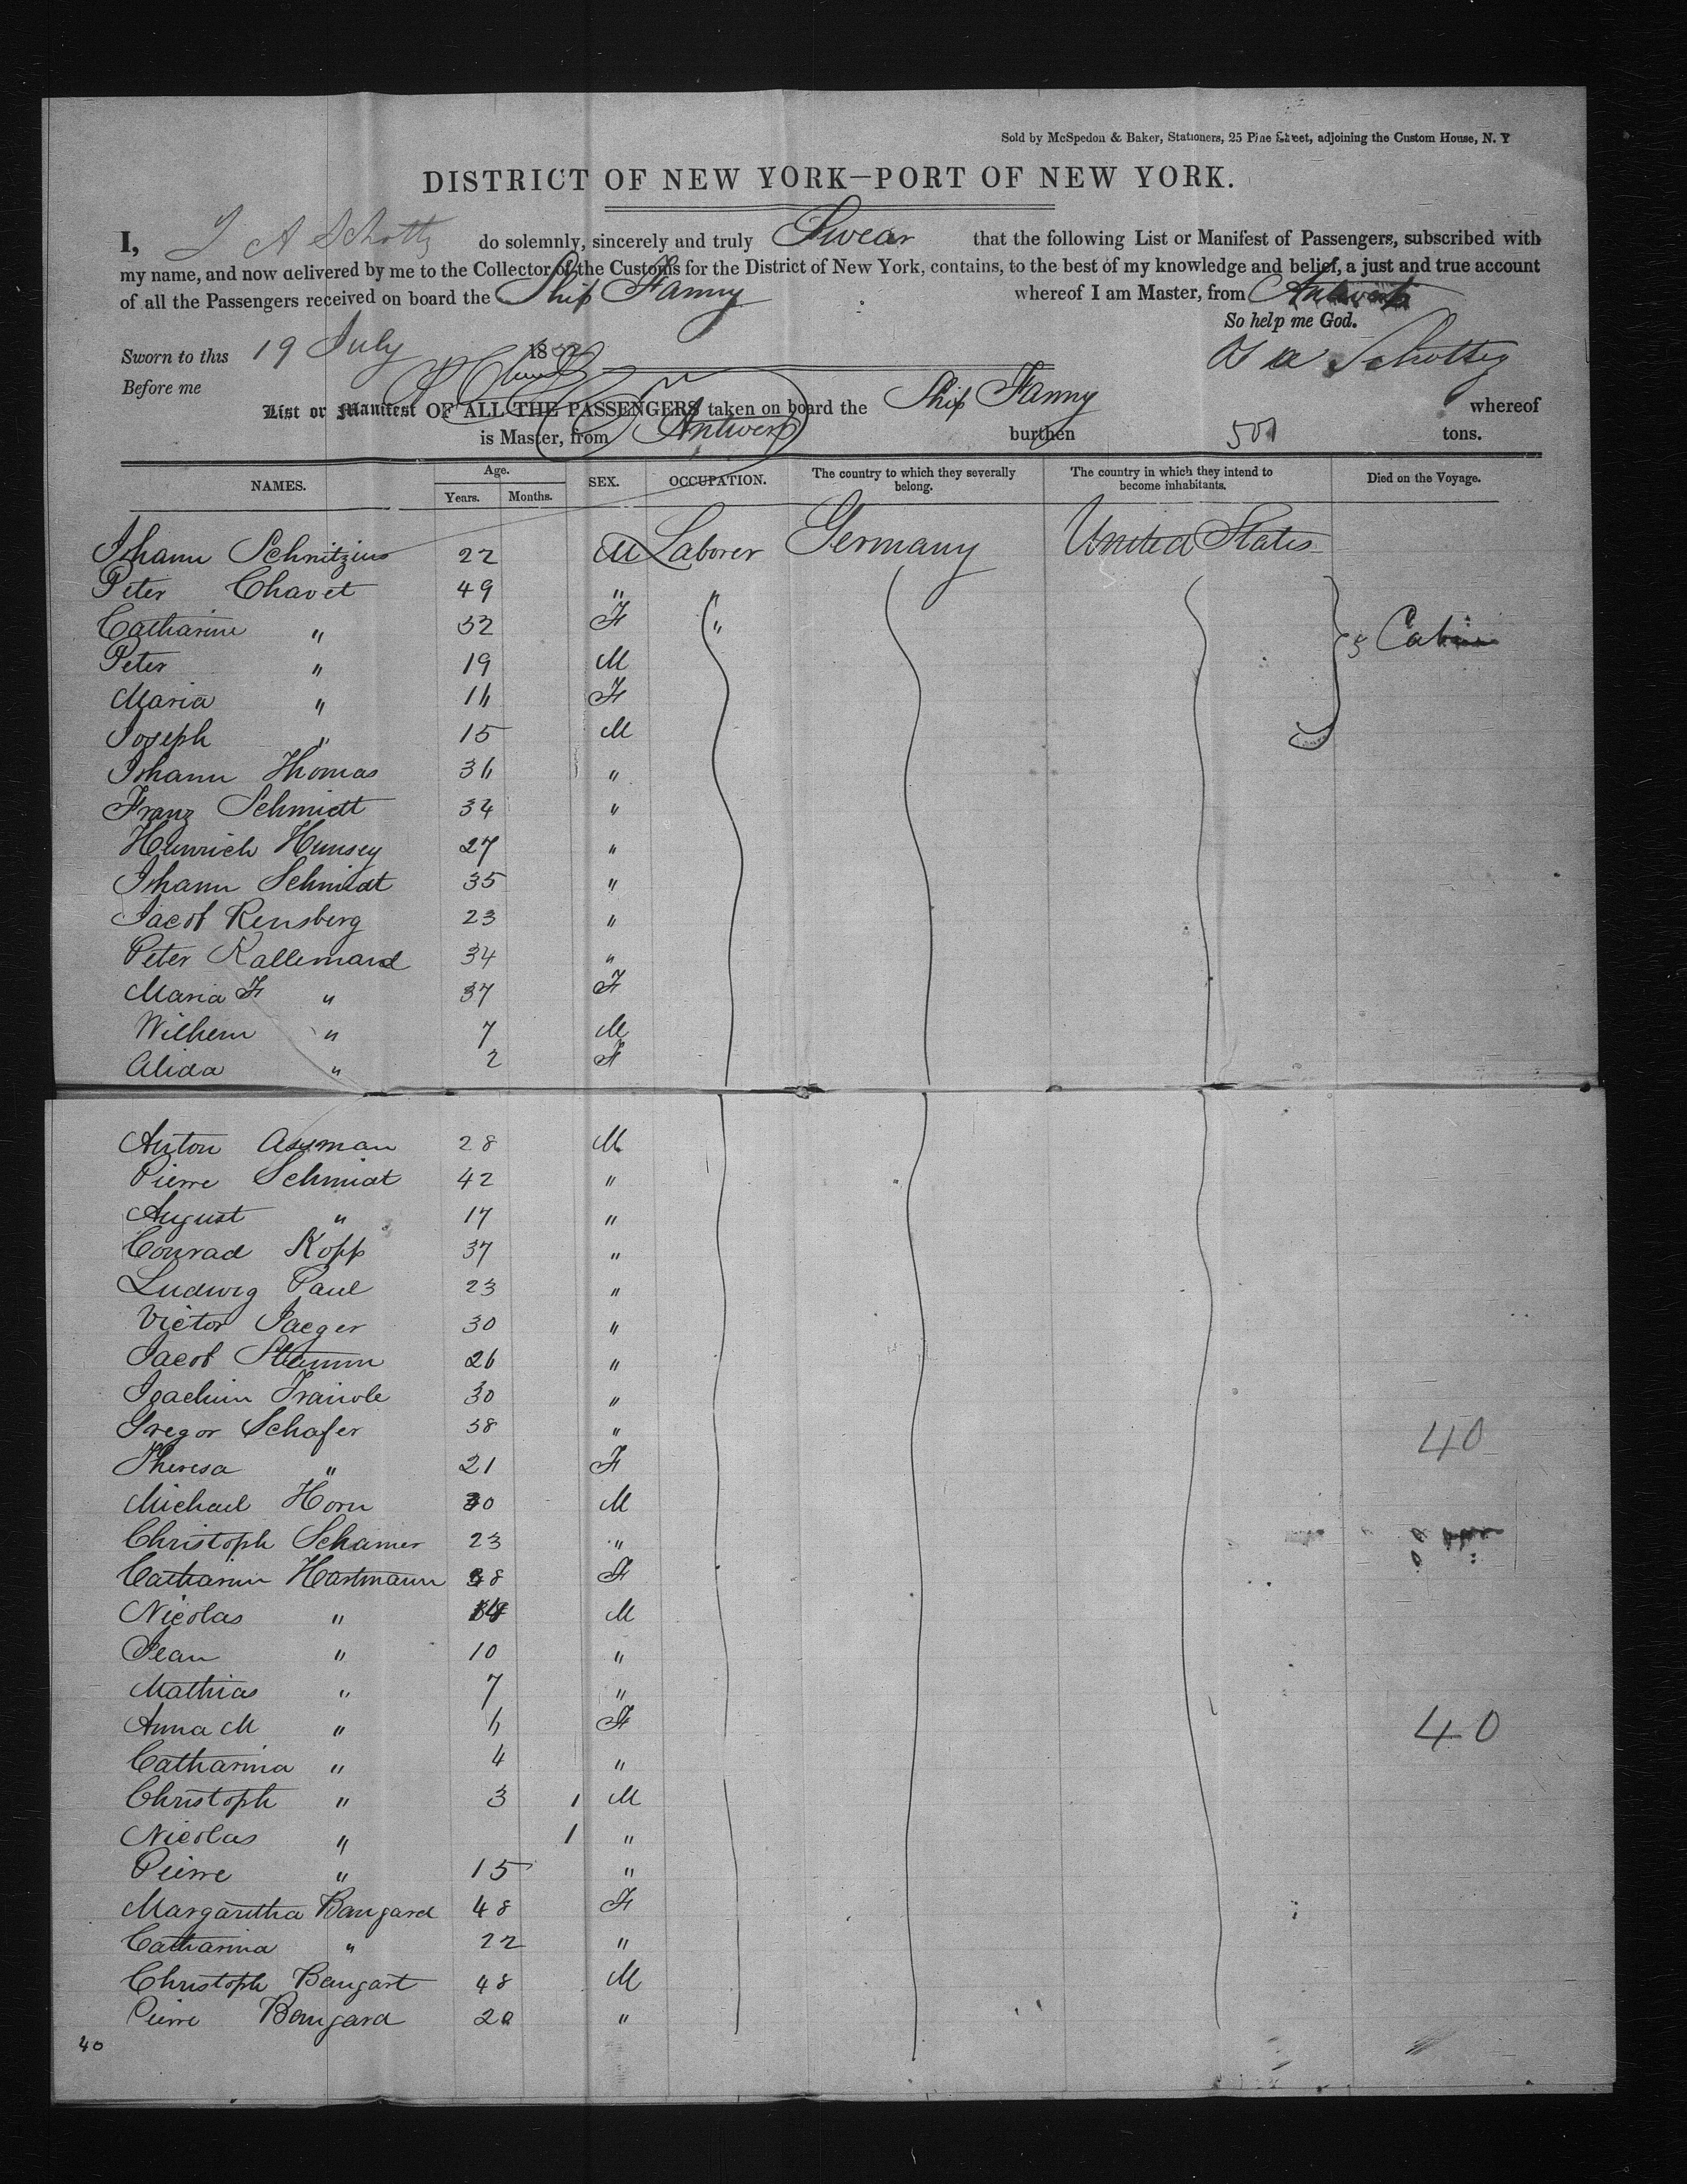 Sold by McSpedon & Baker, Stationers, 25 Pine Street, adjoining the Custom House, N. Y
DISTRICT OF NEW YORK—PORT OF NEW YORK.
I, J A Schottz do solemnly, sincerely and truly Swear that the following List or Manifest of Passengers, subscribed with
my name, and now delivered by me to the Collector of the Customs for the District of New York, contains, to the best of my knowledge and belief, a just and true account
of all the Passengers received on board the Ship Fanny whereof I am Master, from Antwerp
So help me God.
Sworn to this 19 July 1852
Before me
List or Manifest OF ALL THE PASSENGERS taken on board the Ship Fanny whereof
is Master, from Antwerp burthen 501 tons.
NAMES. Age. Years. Months. SEX. OCCUPATION. The country to which they severally belong. The country in which they intend to become inhabitants. Died on the Voyage.
Johann Schnitzius 22 M Laborer Germany United States
Peter Chavet 49 " "
Catharine " 32 F " 5 Cabin
Peter " 19 M
Maria " 16 F
Joseph " 15 M
Johann Thomas 36 "
Franz Schmidt 34 "
Heinrich Hunsey 27 "
Johann Schmidt 35 "
Jacob Rensberg 23 "
Peter Kallemard 34 "
Maria F " 37 F
Wilhem " 7 M
Alida " 2 F
Anton Asyman 28 M
Pierre Schmidt 42 "
August " 17 "
Conrad Kopp 37 "
Ludwig Paul 23 "
Victor Jaeger 30 "
Jacob Stamm 26 "
Joachim 30 "
Gregor Schafer 38 " 40
Theresa " 21 F
Michael Horn 30 M
Christoph Schamer 23 "
Catharin Hartmann 38 F
Nicolas " M
Jean " 10 "
Mathias " 7 "
Anna M " 6 F 40
Catharina " 4 "
Christoph " 3 1 M
Nicolas " 1 "
Pierre " 15 "
Margaretha Bangard 48 F
Catharina " 22 "
Christoph Bengart 48 M
Pierre Bangard 20 "
40